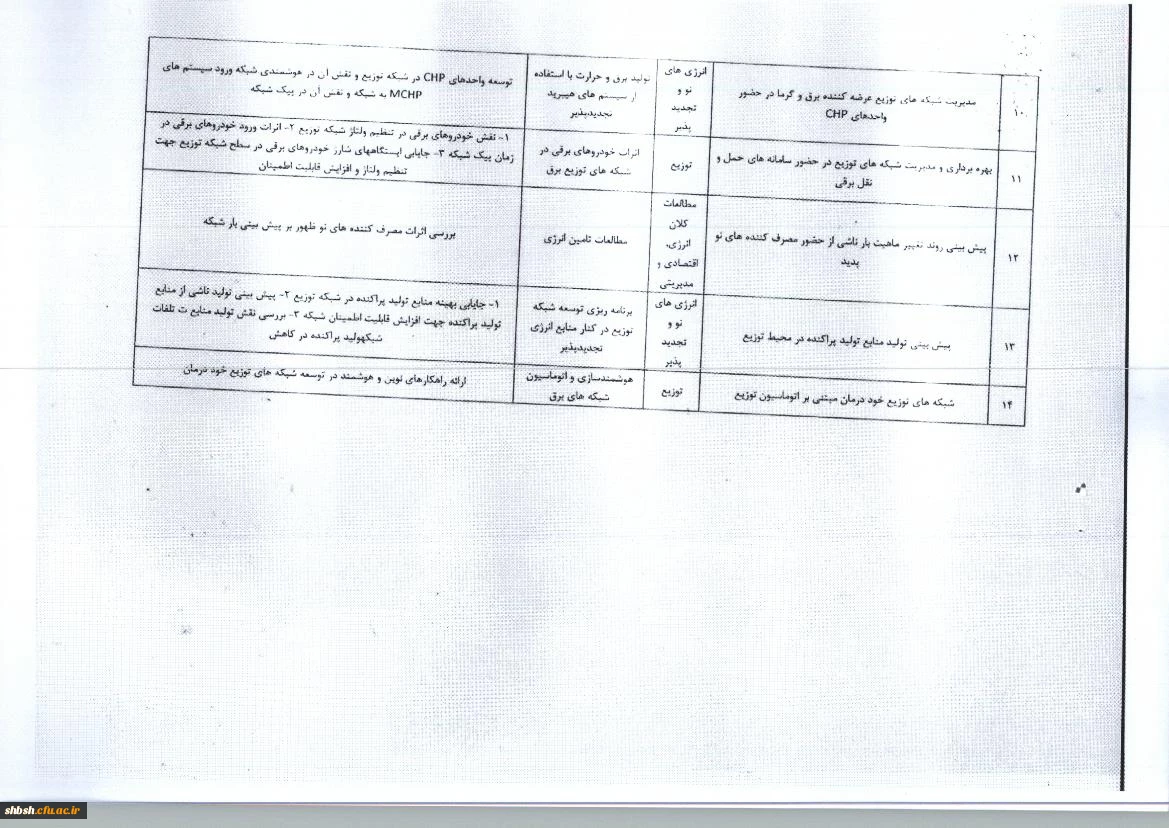 ۱۰
مدیریت شبکه های توزیع عرضه کننده برق و گرما در حضور
واحدهای CHP
انرژی های
نو و
تجدید
پذیر
تولید برق و حرارت با استفاده
از سیستم های هیبرید
تجدیدپذیر
توسعه واحدهای CHP در شبکه توزیع و نقش آن در هوشمندی شبکه ورود سیستم های
MCHP به شبکه و نقش آن در پیک شبکه
۱۱
بهره برداری و مدیریت شبکه های توزیع در حضور سامانه های حمل و
نقل برقی
توزیع
اثرات خودروهای برقی در
شبکه های توزیع برق
۱- نقش خودروهای برقی در تنظیم ولتاژ شبکه توزیع ۲- اثرات ورود خودروهای برقی در
زمان پیک شبکه ۳- جایابی ایستگاههای شارژ خودروهای برقی در سطح شبکه توزیع جهت
تنظیم ولتاژ و افزایش قابلیت اطمینان
۱۲
پیش بینی روند تغییر ماهیت بار ناشی از حضور مصرف کننده های نو
پدید
مطالعات
کلان
انرژی،
اقتصادی و
مدیریتی
مطالعات تامین انرژی
بررسی اثرات مصرف کننده های نو ظهور بر پیش بینی بار شبکه
۱۳
پیش بینی تولید منابع تولید پراکنده در محیط توزیع
انرژی های
نو و
تجدید
پذیر
برنامه ریزی توسعه شبکه
توزیع در کنار منابع انرژی
تجدیدپذیر
۱- جایابی بهینه منابع تولید پراکنده در شبکه توزیع ۲- پیش بینی تولید ناشی از منابع
تولید پراکنده جهت افزایش قابلیت اطمینان شبکه ۳- بررسی نقش تولید منابع ت تلفات
شبکهولید پراکنده در کاهش
۱۴
شبکه های توزیع خود درمان مبتنی بر اتوماسیون توزیع
توزیع
هوشمندسازی و اتوماسیون
شبکه های برق
ارائه راهکارهای نوین و هوشمند در توسعه شبکه های توزیع خود درمان
shbsh.cfu.ac.ir